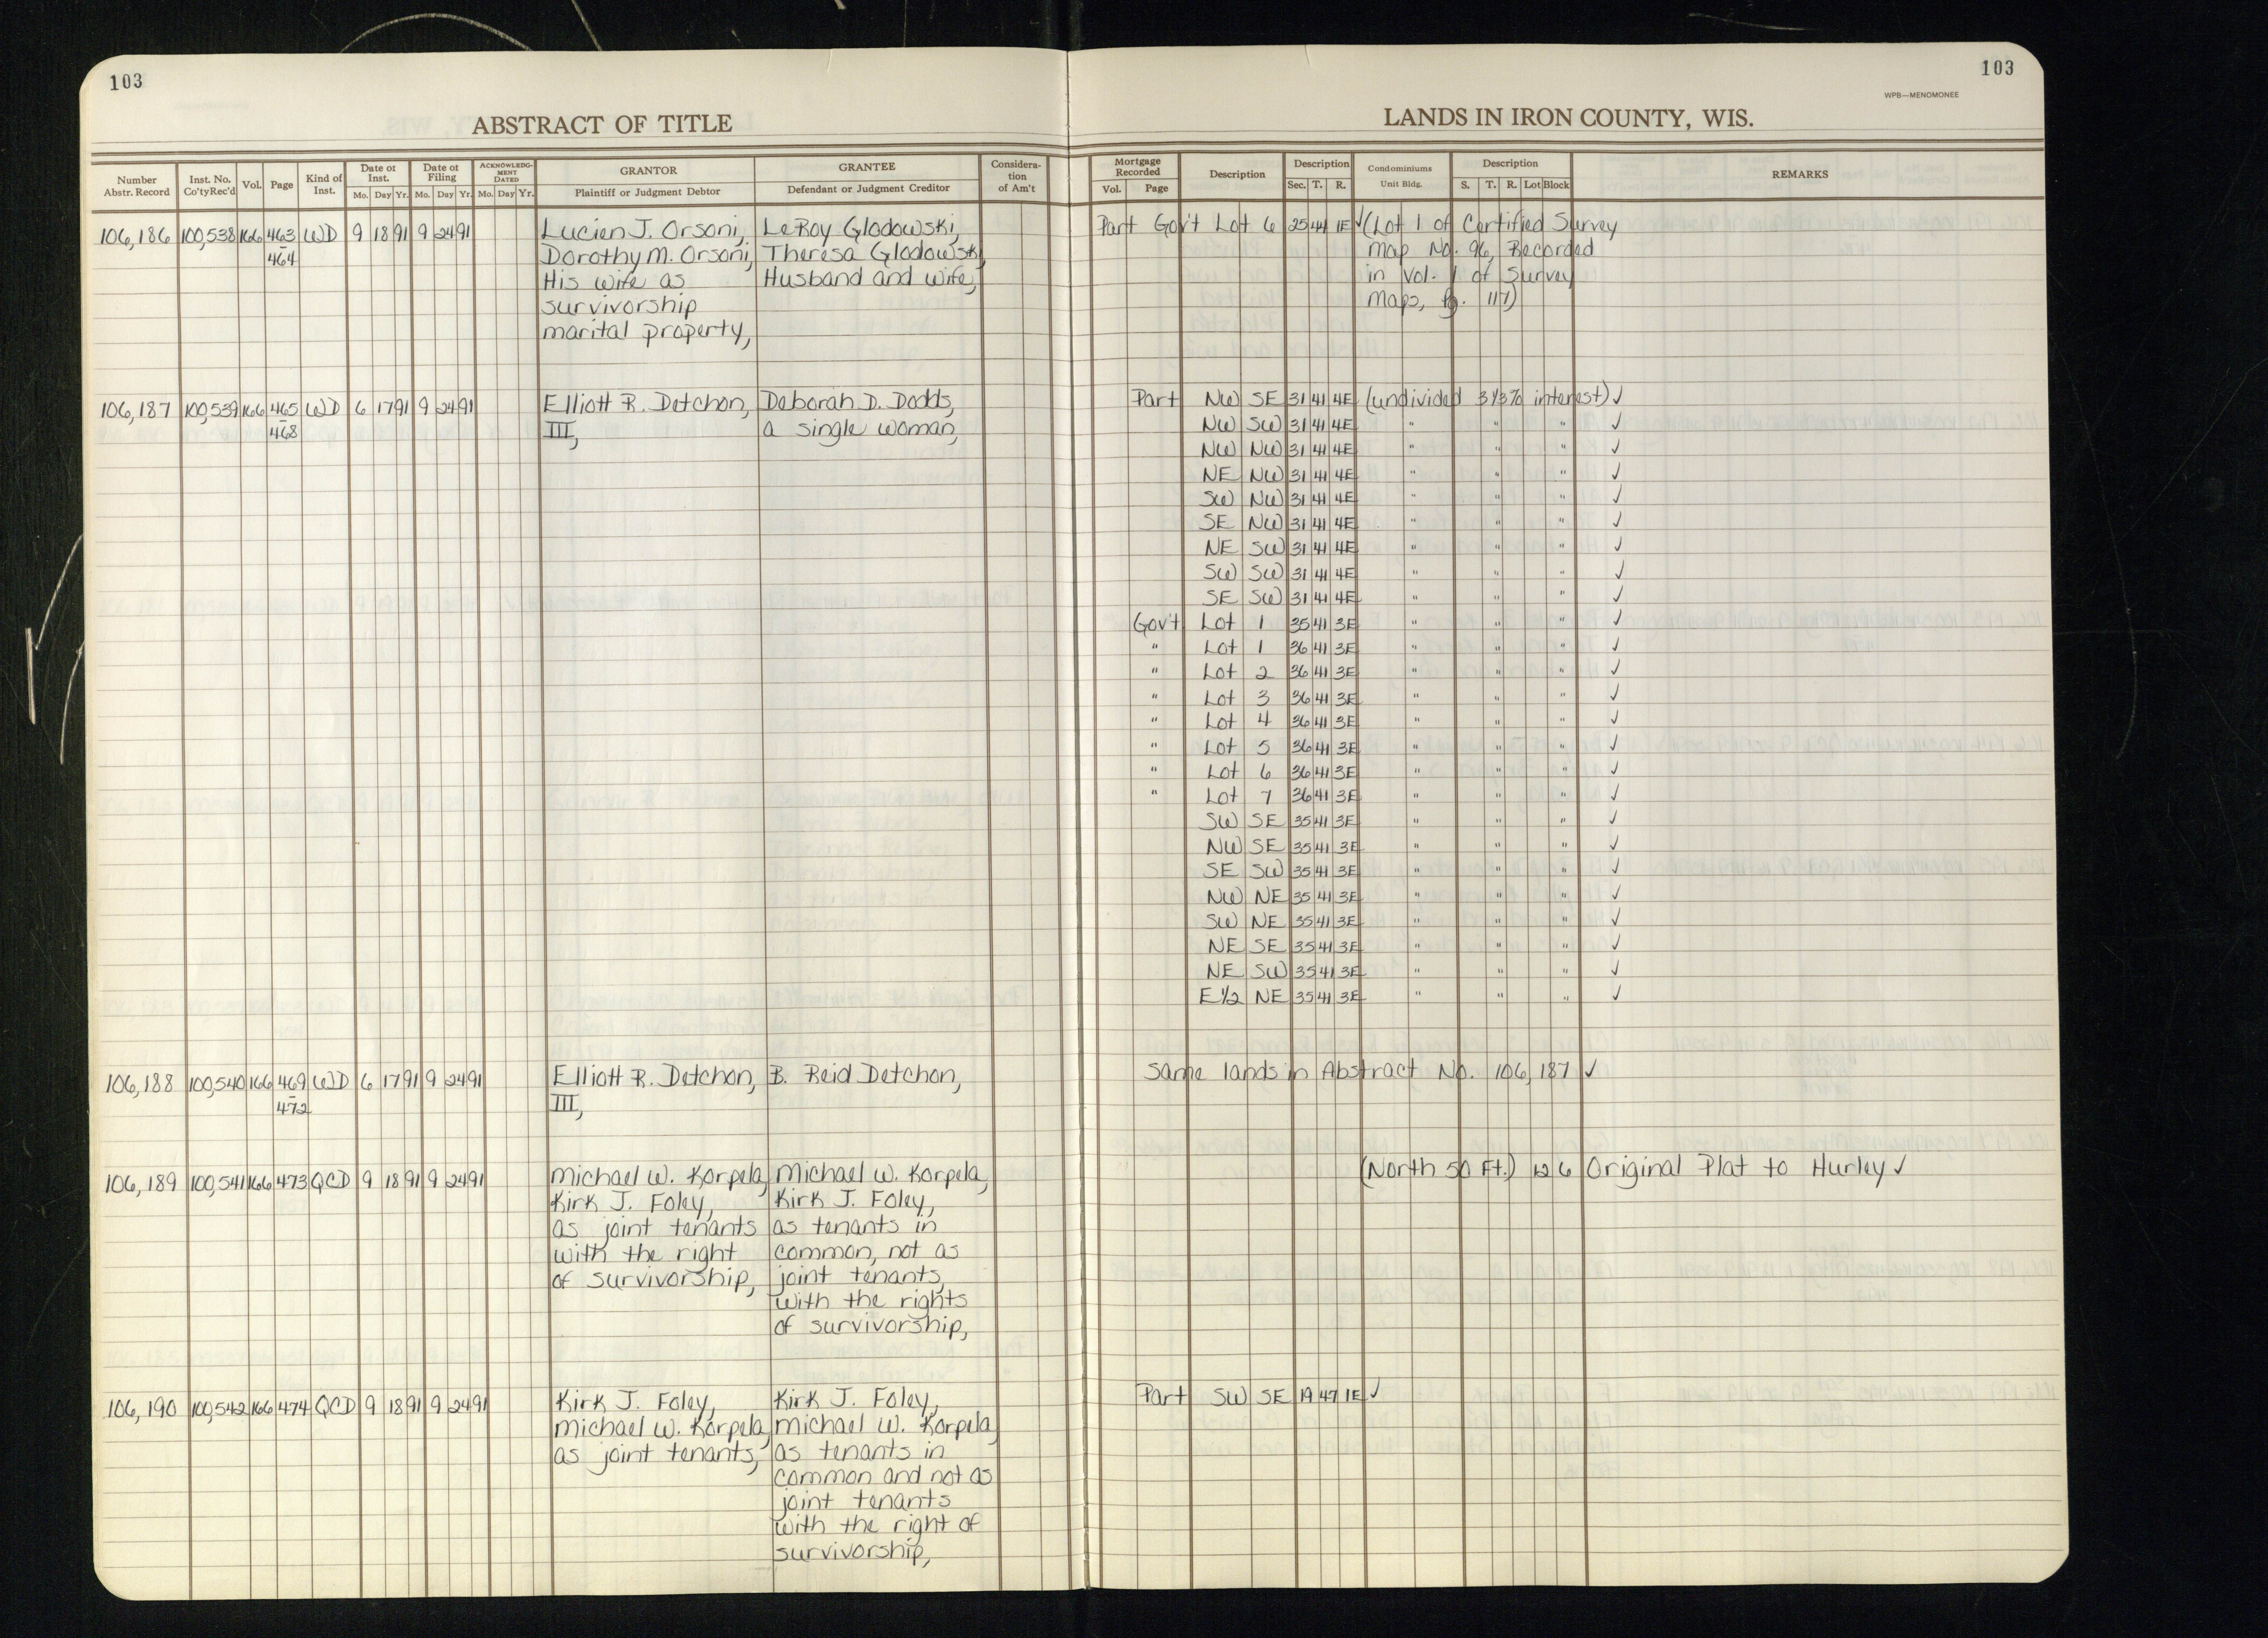 103
103
WPB—MENOMONEE
ABSTRACT OF TITLE
LANDS IN IRON COUNTY, WIS.
Number Abstr. Record Inst. No. Co'ty Rec'd Vol. Page Kind of Inst. Date of Inst. Mo. Day Yr. Date of Filing Mo. Day Yr. ACKNOWLEDGMENT DATED Mo. Day Yr. GRANTOR Plaintiff or Judgment Debtor GRANTEE Defendant or Judgment Creditor Consideration of Am't
Mortgage Recorded Vol. Page Description Description Sec. T. R. Condominiums Unit Bldg. Description S. T. R. Lot Block REMARKS
106,186 100,538 166 463 WD 9 18 91 9 24 91 Lucien J. Orsoni, LeRoy Glodowski, Part Gov't Lot 6 25 44 1E ✓ (Lot 1 of Certified Survey
464 Dorothy M. Orsoni, Theresa Glodowski, Map No. 96, Recorded
His wife as Husband and wife, in Vol. 1 of Survey
survivorship Maps, Pg. 117)
marital property,
106,187 100,539 166 465 WD 6 17 91 9 24 91 Elliott R. Detchon, Deborah D. Dodds, Part NW SE 31 41 4E (undivided 3 1/3% interest) ✓
468 III, a single woman, NW SW 31 41 4E " " " ✓
NW NW 31 41 4E " " " ✓
NE NW 31 41 4E " " " ✓
SW NW 31 41 4E " " " ✓
SE NW 31 41 4E " " " ✓
NE SW 31 41 4E " " " ✓
SW SW 31 41 4E " " " ✓
SE SW 31 41 4E " " " ✓
Gov't Lot 1 35 41 3E " " " ✓
" Lot 1 36 41 3E " " " ✓
" Lot 2 36 41 3E " " " ✓
" Lot 3 36 41 3E " " " ✓
" Lot 4 36 41 3E " " " ✓
" Lot 5 36 41 3E " " " ✓
" Lot 6 36 41 3E " " " ✓
" Lot 7 36 41 3E " " " ✓
SW SE 35 41 3E " " " ✓
NW SE 35 41 3E " " " ✓
SE SW 35 41 3E " " " ✓
NW NE 35 41 3E " " " ✓
SW NE 35 41 3E " " " ✓
NE SE 35 41 3E " " " ✓
NE SW 35 41 3E " " " ✓
E 1/2 NE 35 41 3E " " " ✓
106,188 100,540 166 469 WD 6 17 91 9 24 91 Elliott R. Detchon, B. Reid Detchon, Same lands in Abstract No. 106,187 ✓
472 III,
106,189 100,541 166 473 QCD 9 18 91 9 24 91 Michael W. Korpela, Michael W. Korpela, (North 50 Ft.) 12 6 Original Plat to Hurley ✓
Kirk J. Foley, Kirk J. Foley,
as joint tenants as tenants in
with the right common, not as
of survivorship, joint tenants,
with the rights
of survivorship,
106,190 100,542 166 474 QCD 9 18 91 9 24 91 Kirk J. Foley, Kirk J. Foley, Part SW SE 19 47 1E ✓
Michael W. Korpela, Michael W. Korpela,
as joint tenants, as tenants in
common and not as
joint tenants
with the right of
survivorship,